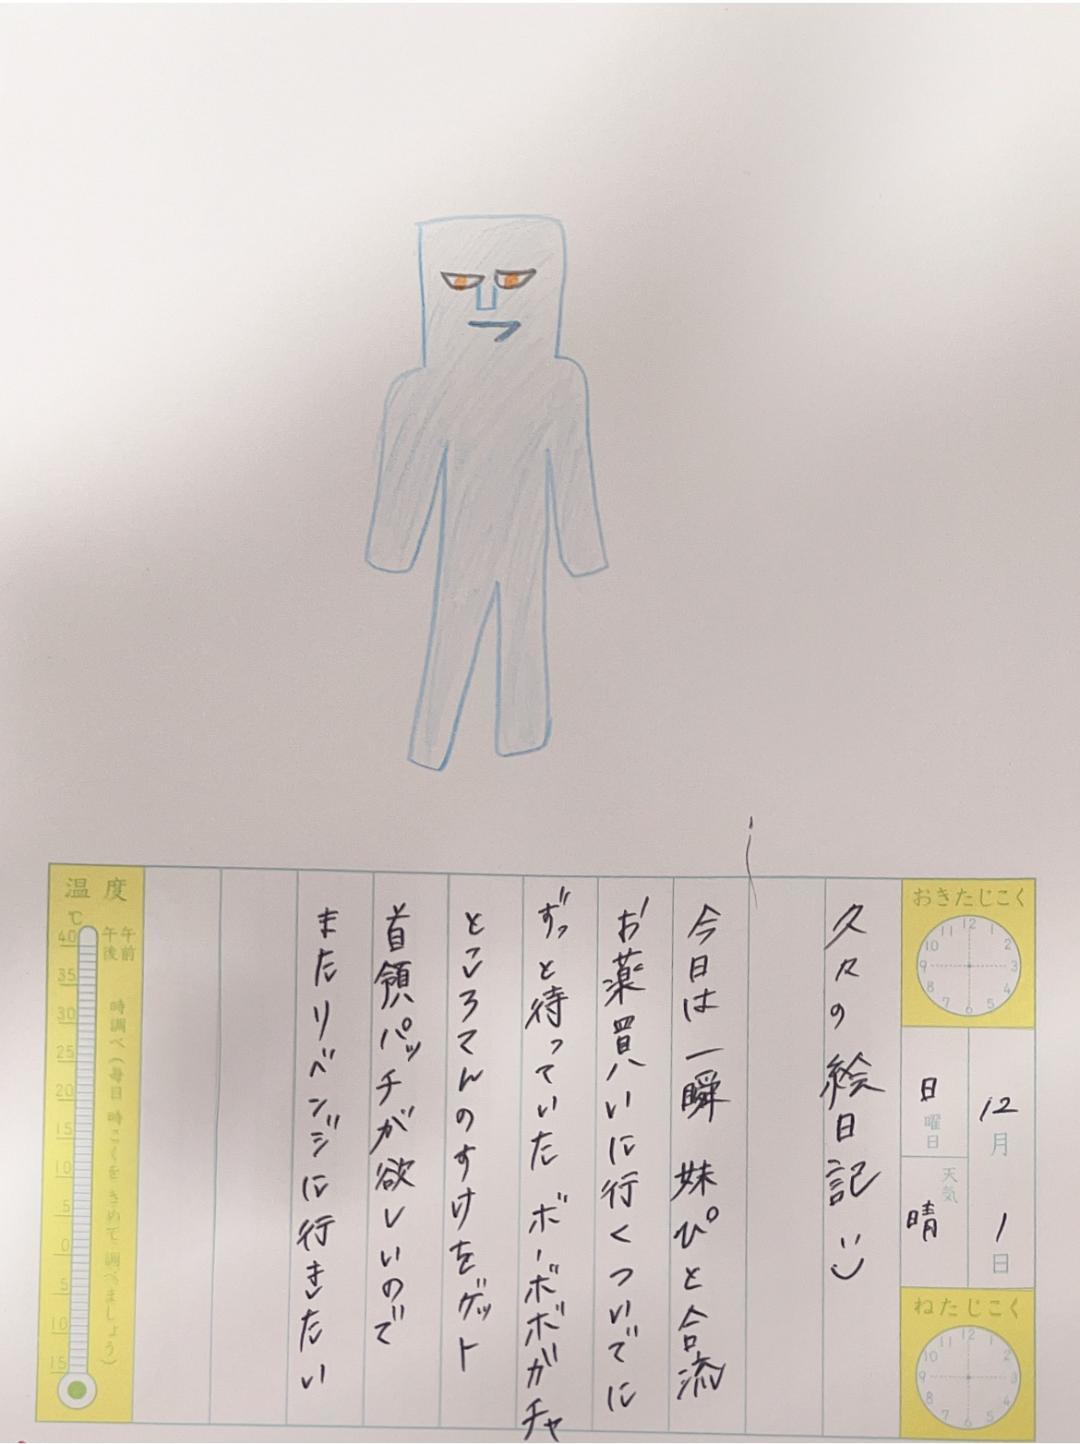 おきたじこく
12月1日
日曜日
天気
晴
ねたじこく
久々の絵日記
今日は一瞬 妹ぴと合流
お薬買いに行くついでに
ずっと待っていた ボーボボガチャ
ところてんのすけをゲット
首領パッチが欲しいので
またリベンジに行きたい
温度
℃
午前
午後
時調べ(毎日 時こくを きめて 調べましょう)
40
35
30
25
20
15
10
5
0
5
10
15